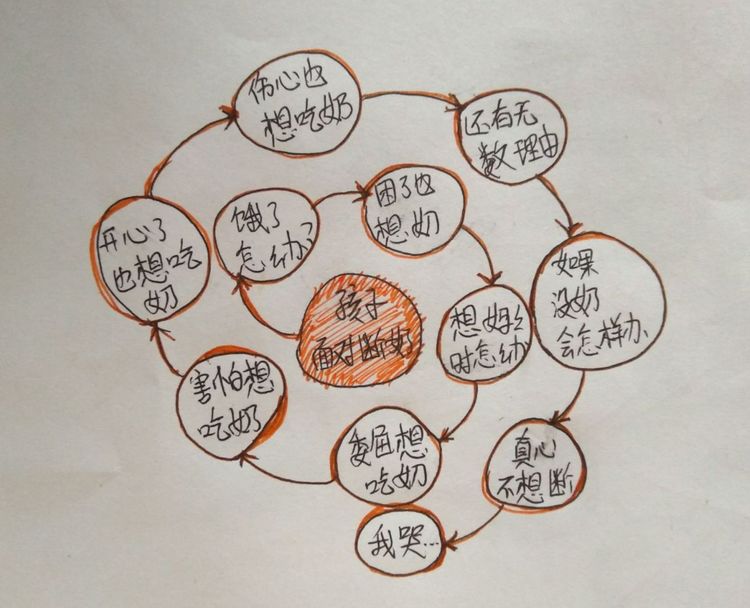 孩子
面对断奶
饿了
怎么办?
困了也
想奶
想妈妈
时怎么办
委屈想
吃奶
害怕想
吃奶
开心了
也想吃
奶
伤心也
想吃奶
还有无
数理由
如果
没奶
会怎样办
真心
不想断
我哭…